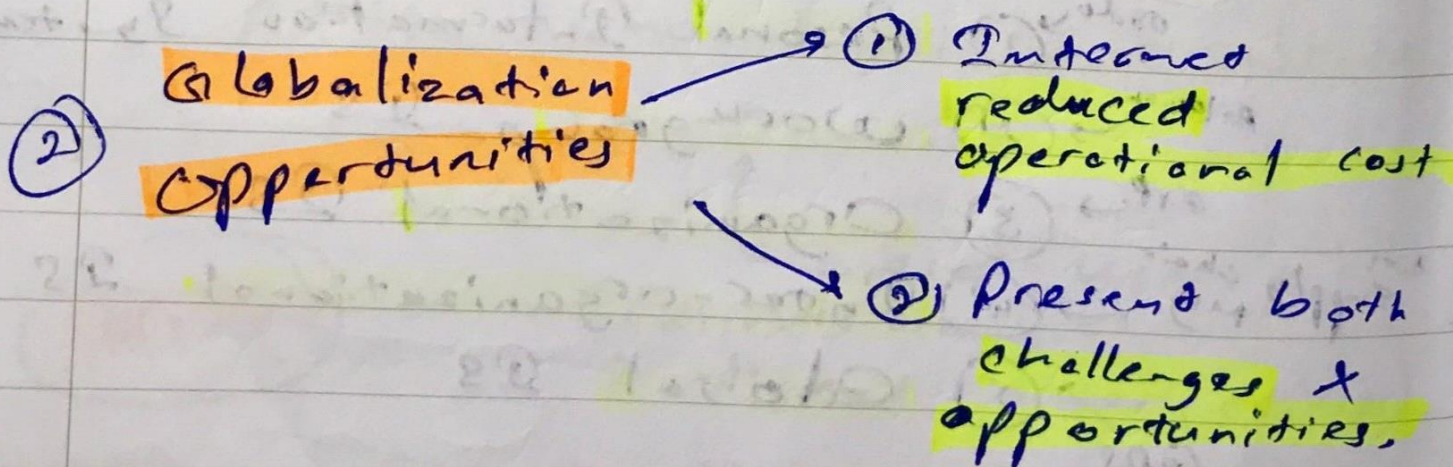 ② Globalization
opportunities
① Internet
reduced
operational cost
② Present both
challenges &
opportunities.